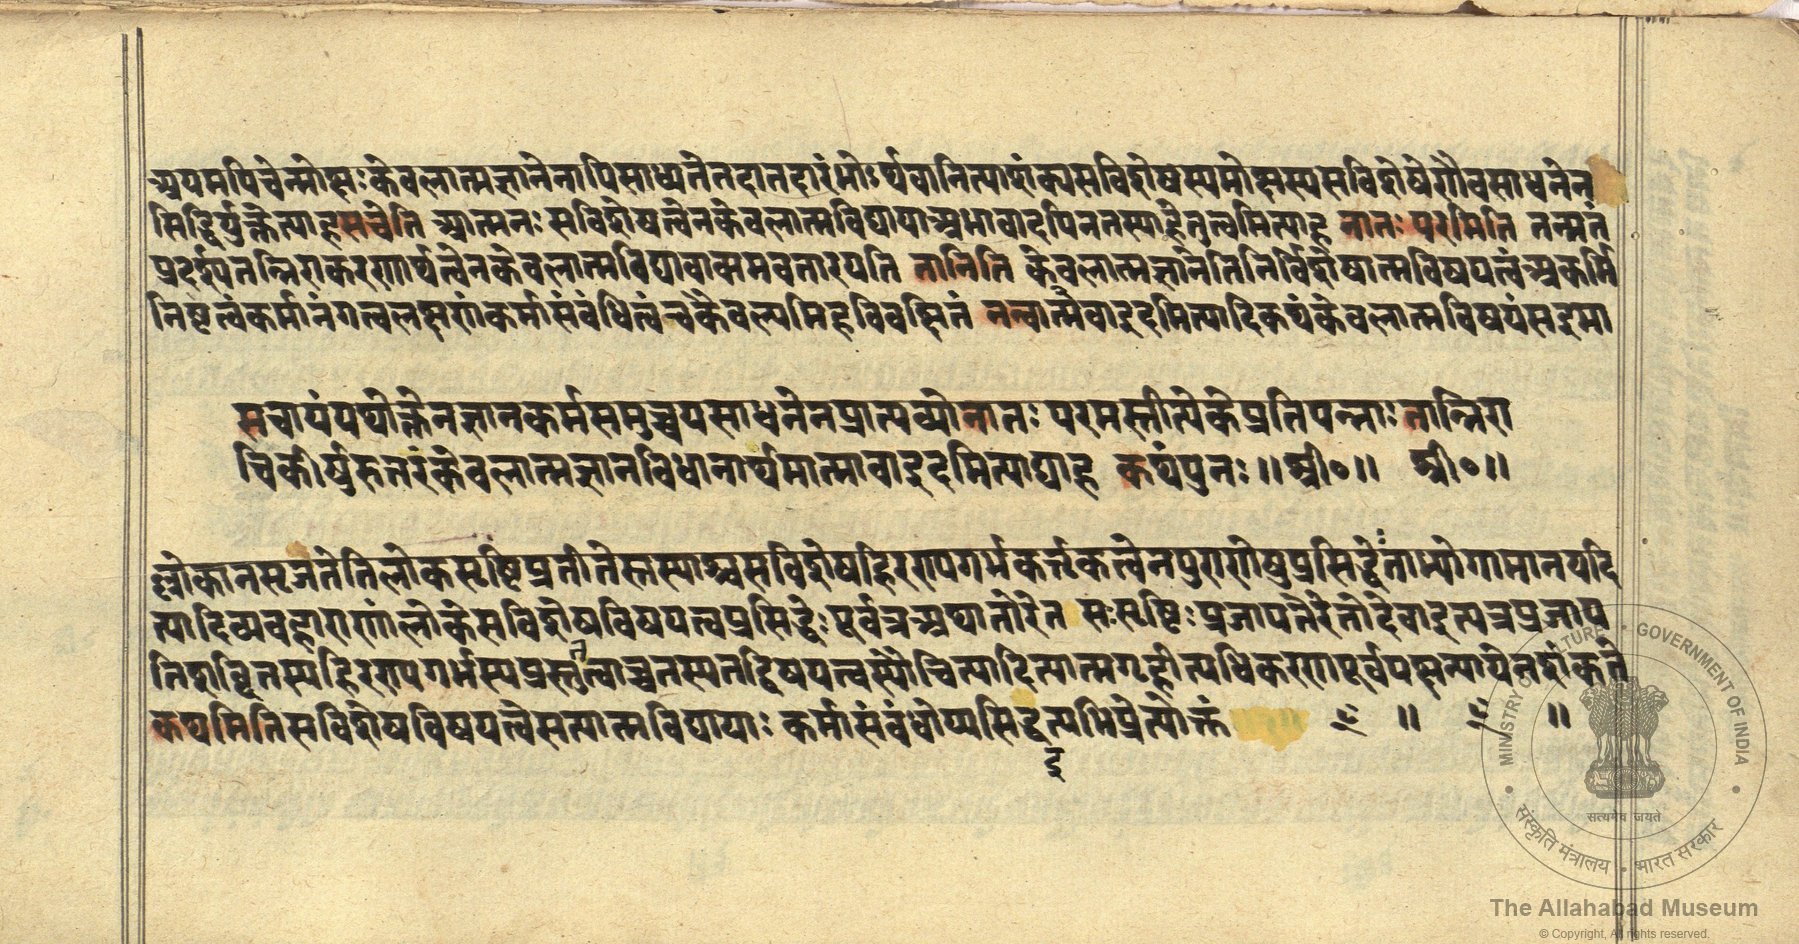 अयमपिचेन्मोक्षःकेवलात्मज्ञानेनापिसाध्यतेतदातदारंभोऽर्थवानित्याशंक्यसविशेषस्यमोक्षस्यसविशेषेणैवसाधनेन
सिद्धिर्युक्तेत्याहसचेति आत्मनः सविशेषत्वेनकेवलात्मविद्यायाअभावादपिनतस्याहेतुत्वमित्याह नातः परमिति तन्मतं
प्रदर्श्यतन्निराकरणार्थत्वेनकेवलात्मविद्यावाक्यमवतारयति तानिति केवलात्मज्ञानेतिनिर्विशेषात्मविषयत्वंअकर्मि
निष्टत्वंकर्मानंगत्वलक्षणंकर्मासंबंधित्वंचकैवल्यमिहविवक्षितं नन्वात्मैवाइदमित्यादिकथंकेवलात्मविषयंसइमा
सचायंयथोक्तेनज्ञानकर्मसमुच्चयसाधनेनप्राप्तव्योनातः परमस्तीत्येकेप्रतिपन्नाः तान्निरा
चिकीर्षुरुत्तरंकेवलात्मज्ञानविधानार्थमात्मावाइदमित्याद्याह कथंपुनः॥श्री०॥ श्री०॥
ल्लोकानसृजतेतिलोकसृष्टिप्रतीतेस्तस्याश्चसविशेषहिरण्यगर्भकर्तृकत्वेनपुराणेषुप्रसिद्धेःताभ्योगामानयदि
त्यादिव्यवहाराणांलोकेसविशेषविषयत्वप्रसिद्धेः पूर्वत्रअथातोरेत सःसृष्टिः प्रजापतेरेतोदेवाइत्यत्रप्रजाप
तिशब्दितस्यहिरण्यगर्भस्यप्रस्तुतत्वाच्चतस्यतद्विषयत्वस्यौचित्यादित्यात्मगृहीत्यधिकरणपूर्वपक्षन्यायेनशंकते
कथमितिसविशेषविषयत्वेसत्यात्मविद्यायाः कर्मासंबंधोप्यसिद्धइत्यभिप्रेत्योक्तं ॥ ॥
MINISTRY OF CULTURE • GOVERNMENT OF INDIA
सत्यमेव जयते
संस्कृति मंत्रालय • भारत सरकार
The Allahabad Museum
© Copyright, All rights reserved.